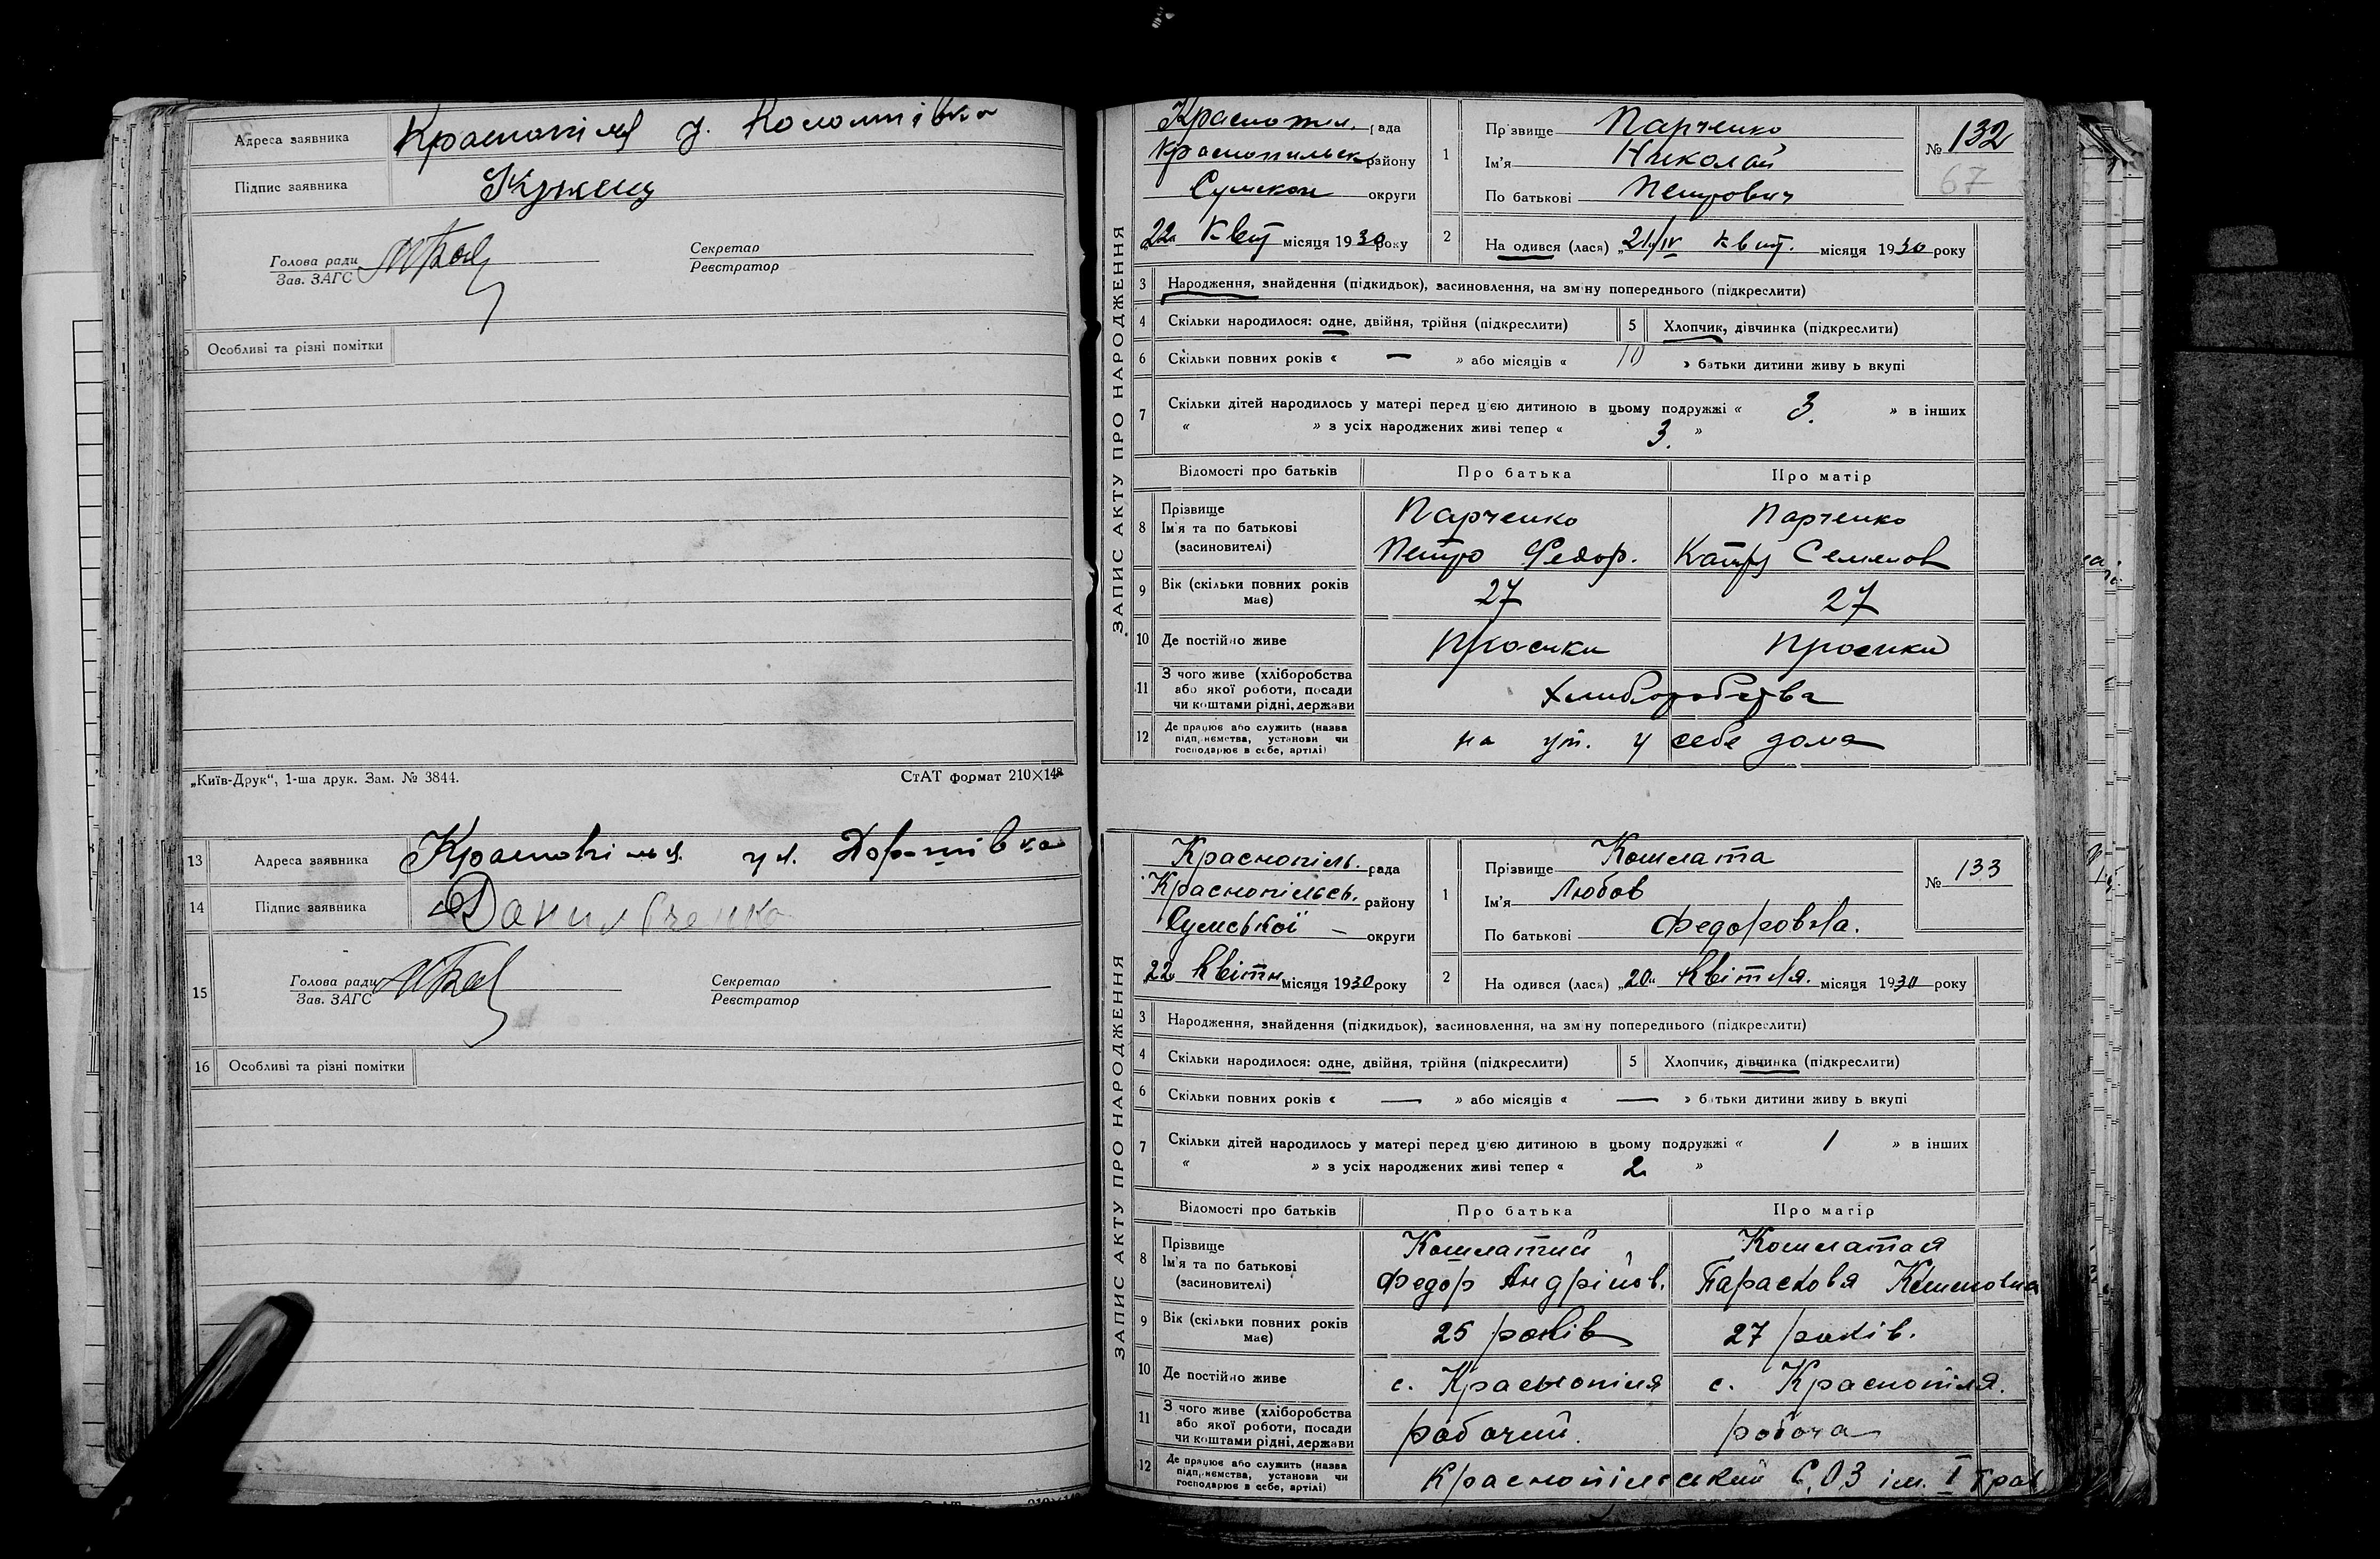 Адреса заявника Краснопілля
Підпис заявника
Голова ради
Зав. ЗАГС
Секретар
Реєстратор
Особливі та різні помітки
„Київ-Друк“, 1-ша друк. Зам. № 3844. СтАТ формат 210×148
13 Адреса заявника
14 Підпис заявника Данильченко
15 Голова ради
Зав. ЗАГС
Секретар
Реєстратор
16 Особливі та різні помітки
ЗАПИС АКТУ ПРО НАРОДЖЕННЯ
рада
району
округи
22 Квіт місяця 1930 року
№ 132
67
1 Прізвище Парченко
Ім'я Николай
По батькові Петрович
2 На одився (лася) „21/IV квіт. місяця 1930 року
3 Народження, знайдення (підкидьок), засиновлення, на зм ну попереднього (підкреслити)
4 Скільки народилося: одне, двійня, трійня (підкреслити) 5 Хлопчик, дівчинка (підкреслити)
6 Скільки повних років « — » або місяців « 10 » батьки дитини живу ь вкупі
7 Скільки дітей народилось у матері перед цєю дитиною в цьому подружжі « 3. » в інших
« » з усіх народжених живі тепер « 3. »
Відомості про батьків Про батька Про матір
8 Прізвище Парченко Парченко
Ім'я та по батькові
(засиновителі) Петро Федор. Семенов
9 Вік (скільки повних років має) 27 27
10 Де постійно живе
11 З чого живе (хліборобства
або якої роботи, посади
чи коштами рідні, держави
12 Де працює або служить (назва
підп,иємства, установи чи
господарює в себе, артілі) на у себе дома
ЗАПИС АКТУ ПРО НАРОДЖЕННЯ
Краснопіль. рада
Краснопільсь. району
Сумської — округи
„22“ Квітн місяця 1930 року
№ 133
1 Прізвище Кошлата
Ім'я Любов
По батькові Федоровна.
2 На одився (лася) „20“ Квітня. місяця 1930 року
3 Народження, знайдення (підкидьок), засиновлення, на зм ну попереднього (підкреслити)
4 Скільки народилося: одне, двійня, трійня (підкреслити) 5 Хлопчик, дівчинка (підкреслити)
6 Скільки повних років « — » або місяців « — » батьки дитини живу ь вкупі
7 Скільки дітей народилось у матері перед цєю дитиною в цьому подружжі « 1 » в інших
« » з усіх народжених живі тепер « 2 »
Відомості про батьків Про батька Про матір
8 Прізвище Кошлатий Кошлатая
Ім'я та по батькові
(засиновителі) Федор Андрійов. Парасковя
9 Вік (скільки повних років має) 25 років 27 років.
10 Де постійно живе с. Краснопілля с. Краснопілля.
11 З чого живе (хліборобства
або якої роботи, посади
чи коштами рідні, держави рабочий. робоча
12 Де працює або служить (назва
підп,иємства, установи чи
господарює в себе, артілі) Краснопільський С.О.З ім. I Трав